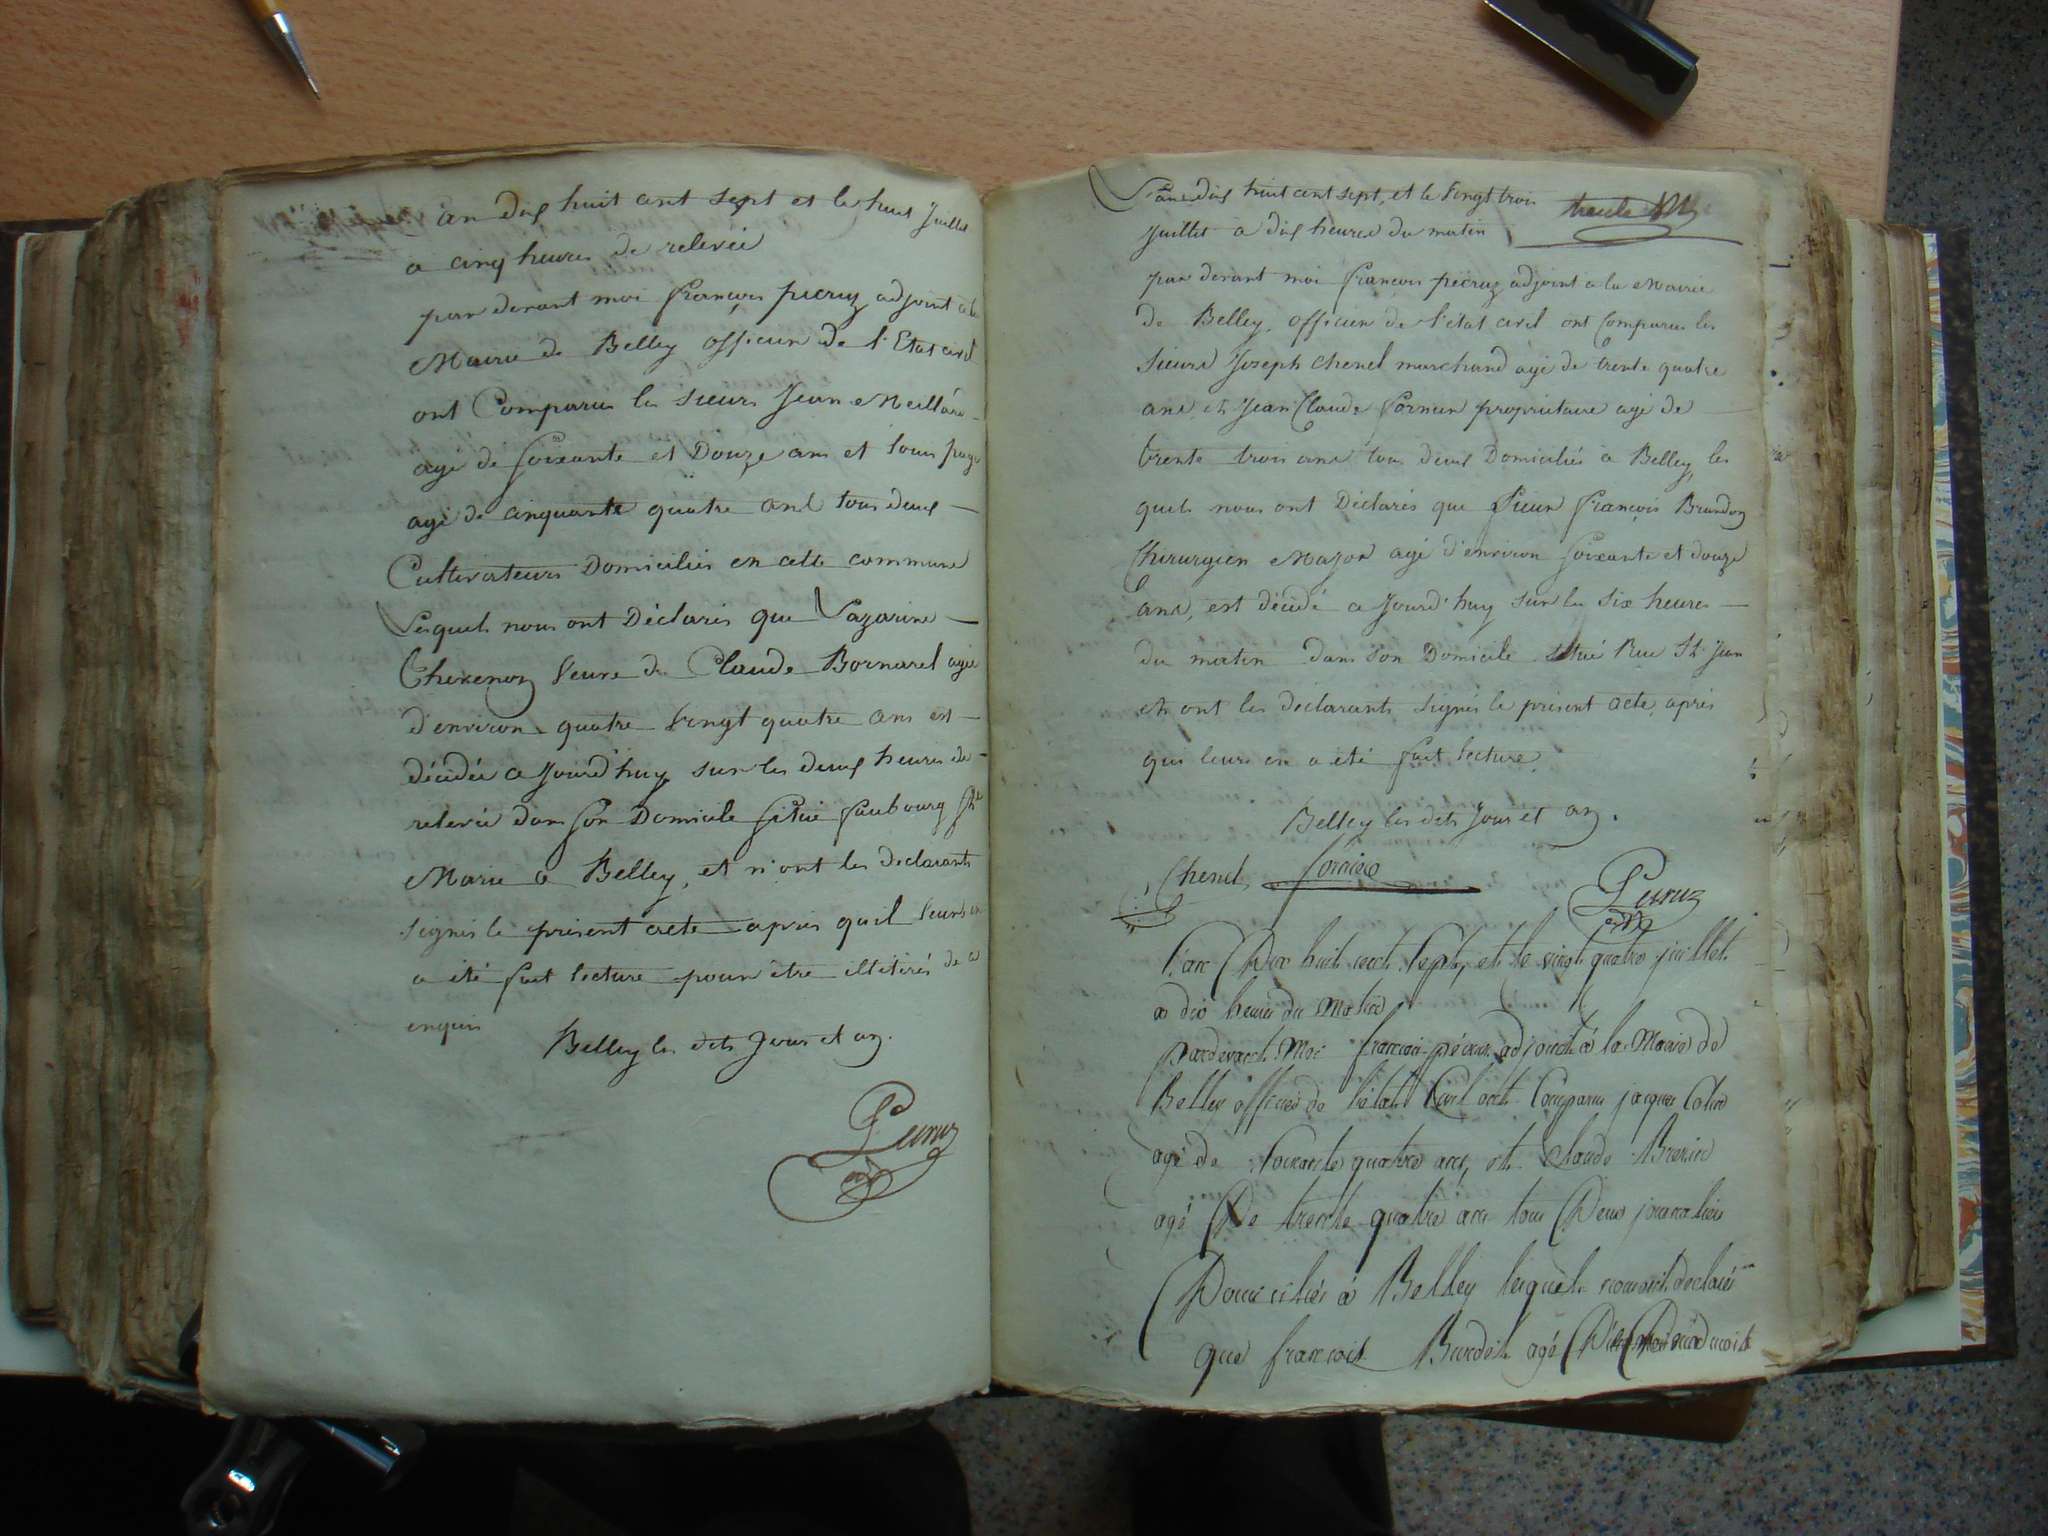 an dix huit cent sept et le huit Juillet
a cinq heures de relevée
par devant moi françois pecruz adjoint a la
Mairie de Belley officier de l'Etat civil
ont Comparu les sieurs Jean Meillar
agé de soixante et Douze ans et
agé de cinquante quatre ans tous deux
Cultivateurs Domiciliés en cette commune
Lesquels nous ont Déclarés que Lazarine
veuve de Claude Bornarel agée
d'environ quatre vingt quatre ans est
décédée a Jourd'huy sur les deux heures de
relevée dans son Domicile situé faubourg Ste
Marie a Belley, et n'ont les declarants
signés le présent acte apres quil leurs en
a été fait lecture pour être illitérés de ce
enquis
Belley les dits Jour et an.
Pecruz
adj
L'an dix huit cent sept, et le vingt trois
Juillet a dix heures du matin
par devant moi françois pécruz adjoint a la Mairie
de Belley, officier de l'état civil ont Comparu les
sieurs Joseph Chenel marchand agé de trente quatre
ans et Jean Claude fornier propriétaire agé de
trente trois ans tous deux Domiciliés a Belley, les
quels nous ont Déclarés que Sieur françois Brandon
Chirurgien Major agé d'environ soixante et douze
ans, est décédé a Jourd'huy sur les six heures
du matin dans son Domicile situé Rue St Jean
et ont les déclarants signés le présent acte, apres
qui leurs en a été fait lecture.
Belley les dits Jour et an.
Chenel fornier Pecruz
adj
L'an Dix huit cent Sept, et le vingt quatre juillet
a dix heures du Matin
Pardevant Moi francois pécruz adjoint à la Mairie de
Belley officier de l'état Civil ont Comparu jacques Colin
agé de soixante quatre ans, et Claude
agé De trente quatre ans tous Deux journaliers
Domiciliés à Belley lesquels nous ont déclarés
que francois Burdet agé